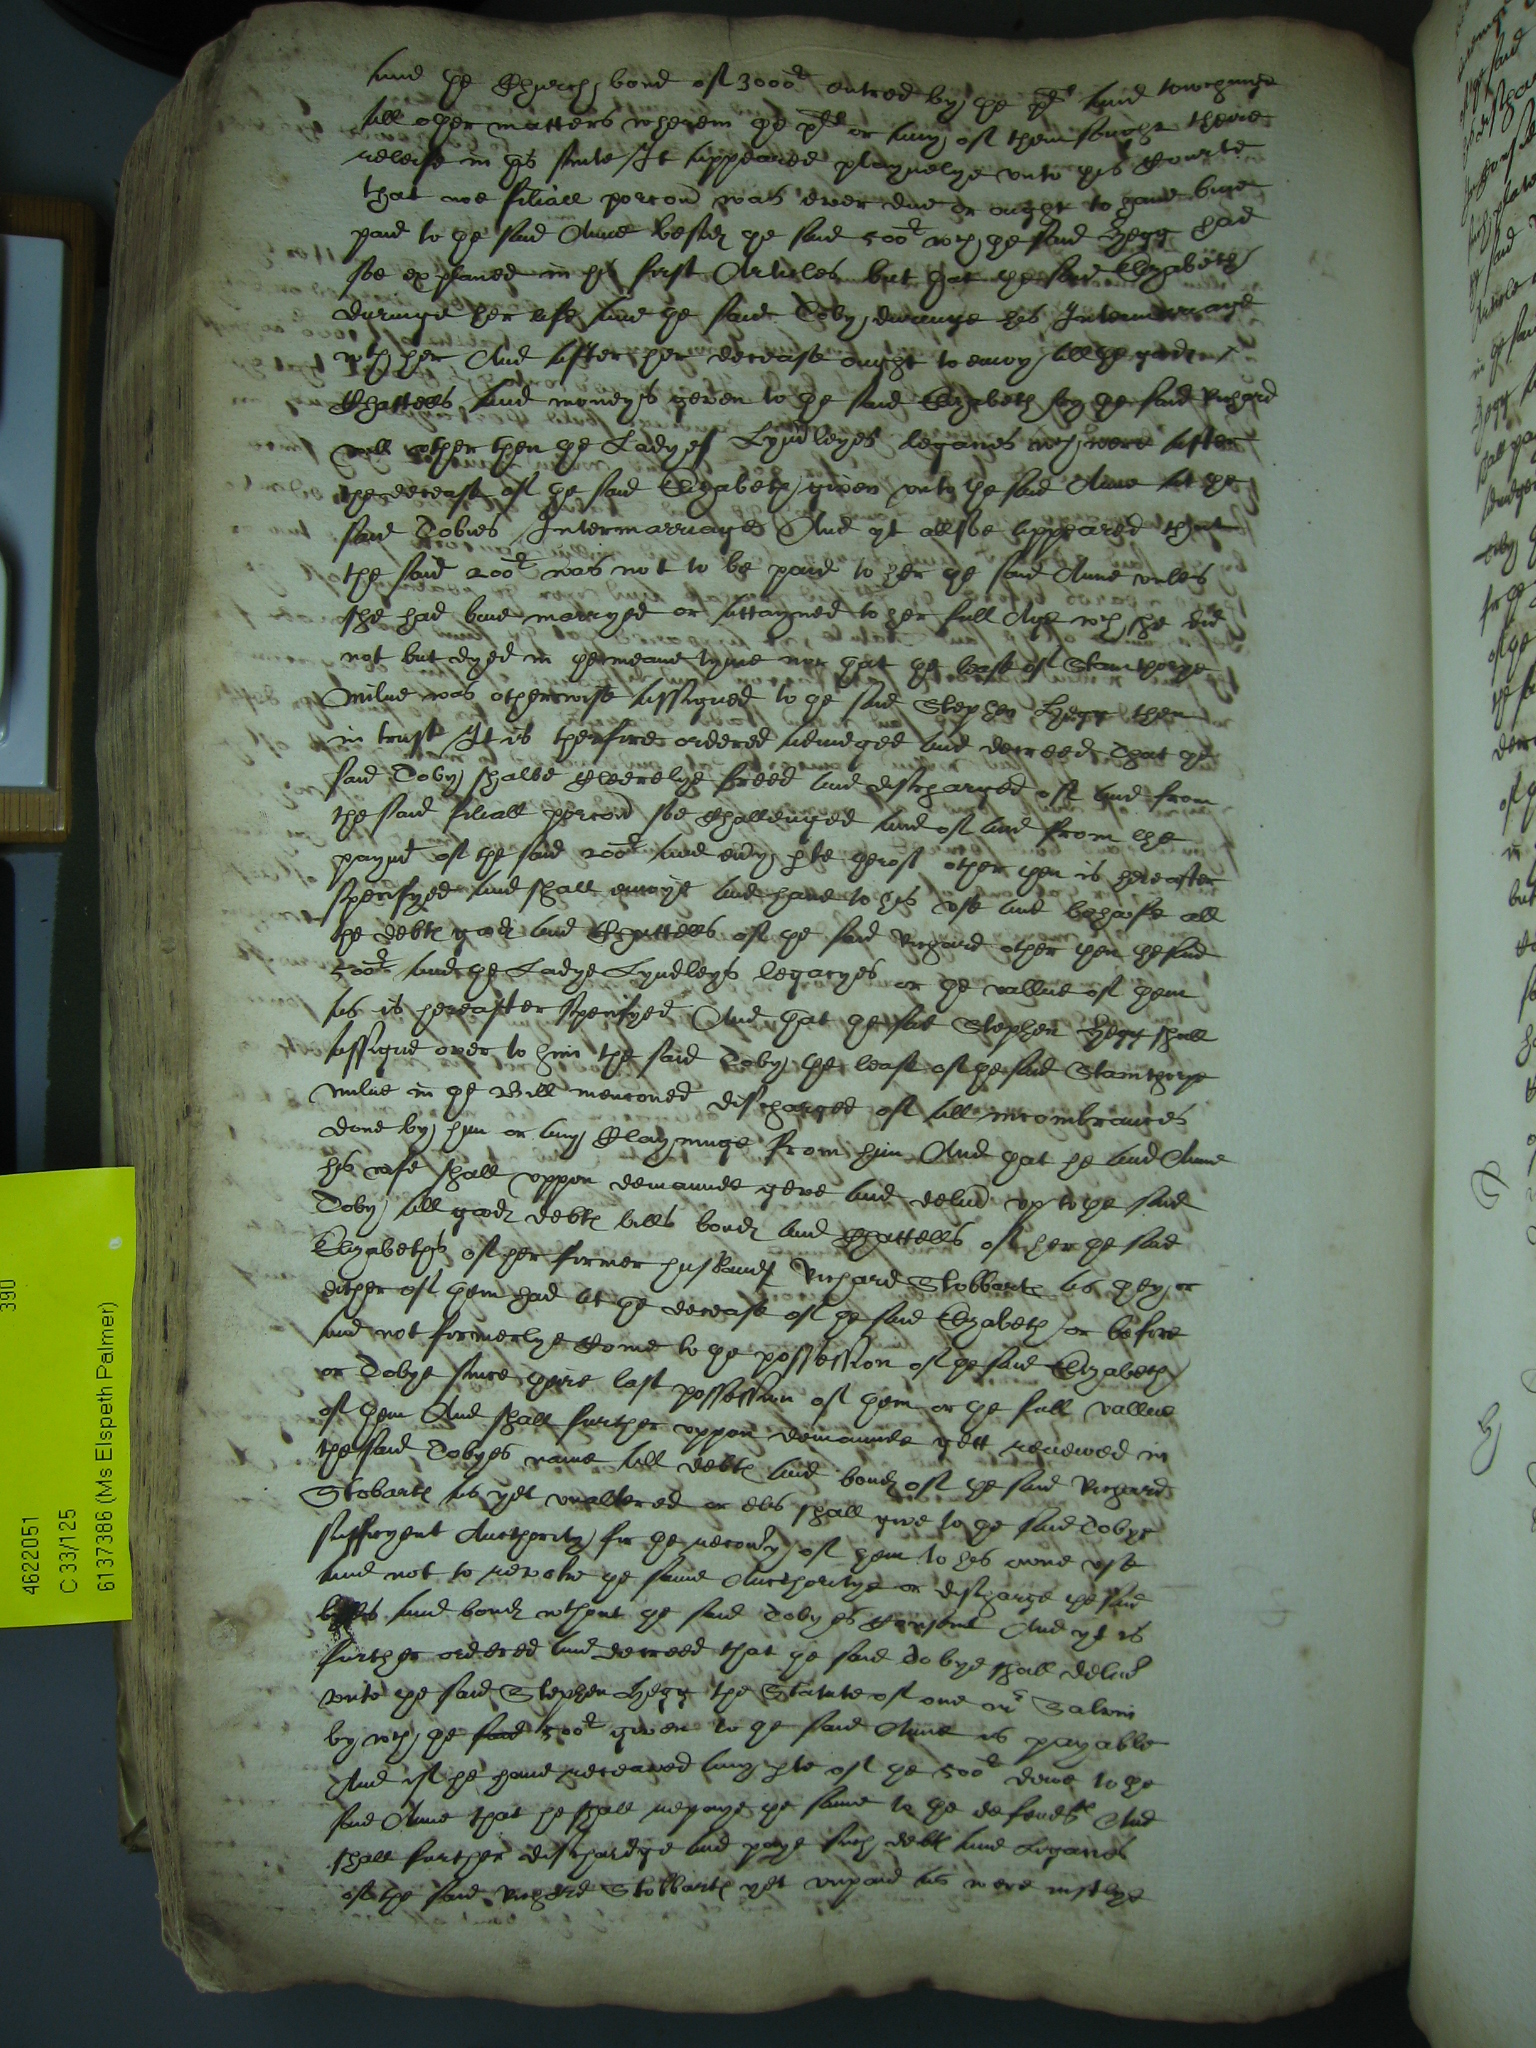 and the Church bond of 3000li entred by the plt and towchinge
all other matters wherein the plts or any of them sought theire
releife in this suite It appeared playnelye unto this Courte
that noe filiall porcon was ever due or ought to have bine
paid to the said Anne besids the said 500li wch the said Hegg had
soe explaned in his first Articles but that the said Elizabeth
duringe her life and the said Toby duringe his Intermarriage
wth her And after her decease ought to enioy all the goods
Chattells and moneys geven to the said Elizabeth by the said Richard
will other then the Ladyes Lyndleyes legacies wch were after
the decease of the said Elizabeth given unto the said Anne at the
said Tobies Intermarriage And yt allsoe appeared that
the said 200li was not to be paid to her the said Anne unles
she had bine marryed or attayned to her full Age wch she did
not but dyed in the meane tyme nor that the lease of Stainthorpe
milne was otherwise assigned to the said Stephen Hegg then
in trust It is therfore ordered adiudged and decreed That the
said Toby shalbe cleerelye freed and discharged of and from
the said filiall porcon soe challenged and of and from the
paymt of the said 200li and every pte therof other then is hereafter
specifyed and shall enioye and have to his use and behoofe all
the debts goods and Chattells of the said Richard other then the said
500li and the Ladye Lyndleys legacyes or the vallue of them
as is hereafter specifyed And that the said Stephen Hegg shall
assigne over to him the said Toby the lease of the said Stainthorpe
milne in the Bill mencioned discharged of all incombrances
done by him or any Clayminge from him And that he and Anne
his wife shall uppon demaunde geve and deliver up to the said
Toby all goods debts bills bonds and Chattells of her the said
Elizabeths of her former husbands Richard Stobbarts as they or
either of them had at the decease of the said Elizabeth or before
and not formerlye Come to the possession of the said Elizabeth
or Tobye since theire last possession of them or the full vallue
of them And shall further uppon demaunde gett renewed in
the said Tobyes name all debts and bonds of the said Richard
Stobarts as yet unaltered or els shall give to the said Tobye
sufficyent Authority for the recovry of them to his owne use
and not to revoke the same Authoritye or discharge the said
bylls and bonds wthout the said Tobyes Consent And yt is
further ordered and decreed that the said Tobye shall deliver
unto the said Stephen Hegg the Statute of one mr Salvin
by wch the said 500li given to the said Anne is payable
And if he have receaved any pte of the 500li dewe to the
said Anne that he shall repaye the same to the defendts And
shall further dischardge and paye such debts and Legacies
of the said Richard Stobbarts yet unpaid as were iustlye
390
4622051
C 33/125
6137386 (Ms Elspeth Palmer)